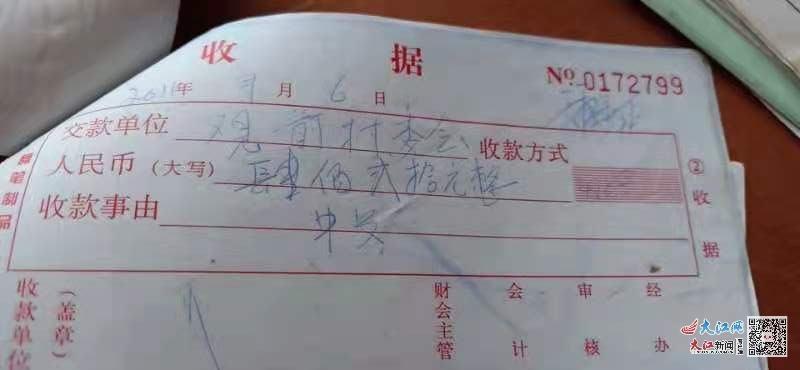 收 据
№ 0172799
2011年 9月 6日
交款单位 观前村委会 收款方式
人民币（大写） 肆佰贰拾元整
收款事由
② 收据
笔制品
收款单位
（盖章）
财会主管
会计
审核
经办
大江网
大江新闻